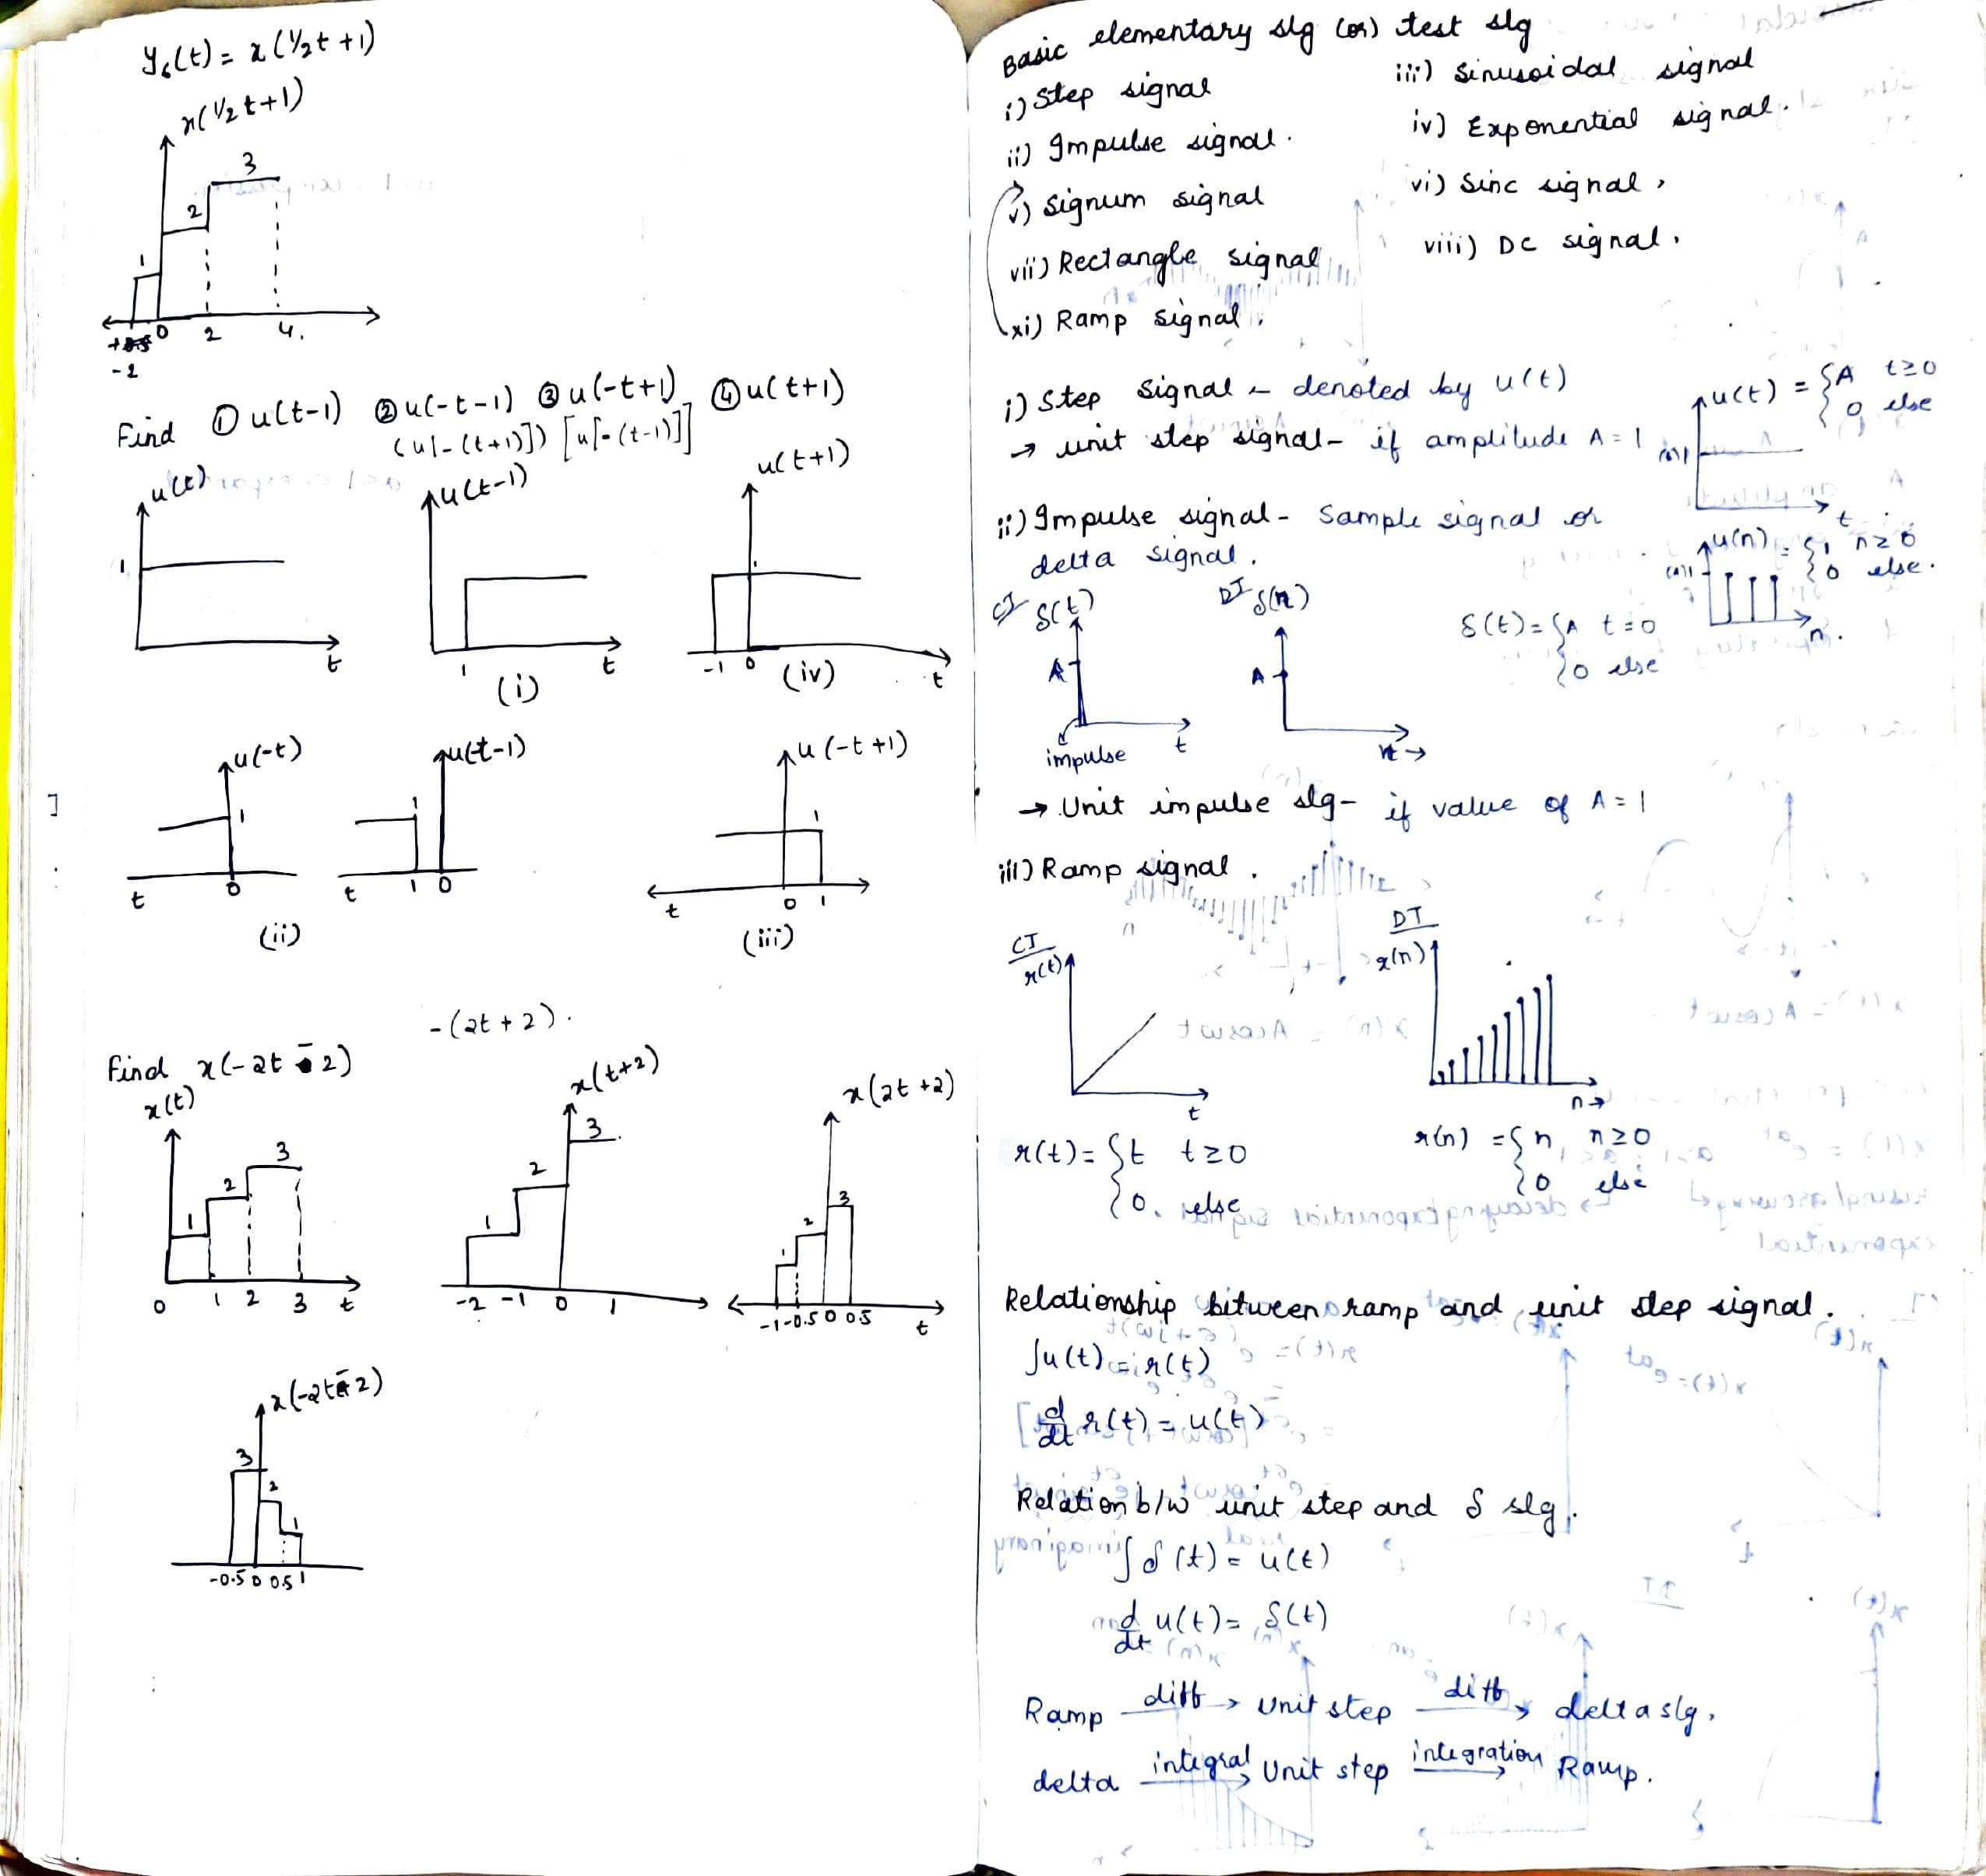 y₆(t) = x(1/2t +1)
x(1/2 t+1)
3
2
1
0 2 4.
-2
Find ① u(t-1) ② u(-t-1) ③ u(-t+1) ④ u(t+1)
(u[-(t+1)]) [u[-(t-1)]]
u(t) u(t-1) u(t+1)
1 1
t 1 t -1 0 t
(i) (iv)
u(-t) u(-t-1) u(-t+1)
1 1 1
t 0 t 1 0 t 0 1
(ii) (iii)
-(2t+2).
Find x(-2t-2)
x(t) x(t+2) x(2t+2)
1 2 3 1 2 3 1 2 3
0 1 2 3 t -2 -1 0 1 -1 -0.5 0 0.5 t
x(-2t-2)
3 2 1
-0.5 0 0.5 1
Basic elementary slg (or) test slg
i) Step signal iii) Sinusoidal signal
ii) Impulse signal. iv) Exponential signal.
v) Signum signal vi) Sinc signal,
vii) Rectangle signal viii) DC signal.
xi) Ramp signal.
i) Step signal - denoted by u(t)
→ unit step signal - if amplitude A = 1
u(t) = {A t≥0
0 else
(A)1
t
ii) Impulse signal - Sample signal or
delta signal.
u(n) = {1 n≥0
0 else.
(A)1
n.
CT δ(t) DT δ(n)
δ(t) = {A t=0
0 else
A A
impulse t n→
→ Unit impulse slg - if value of A = 1
iii) Ramp signal.
CT DT
r(t) r(n)
t n→
r(t) = {t t≥0
0. else
r(n) = {n, n≥0
0 else
Relationship bitween ramp and unit step signal.
∫u(t) = r(t)
d/dt r(t) = u(t)
Relation b/w unit step and δ slg.
∫δ(t) = u(t)
d/dt u(t) = δ(t)
Ramp diff → Unit step diff → delta slg.
delta integral → Unit step integration → Ramp.